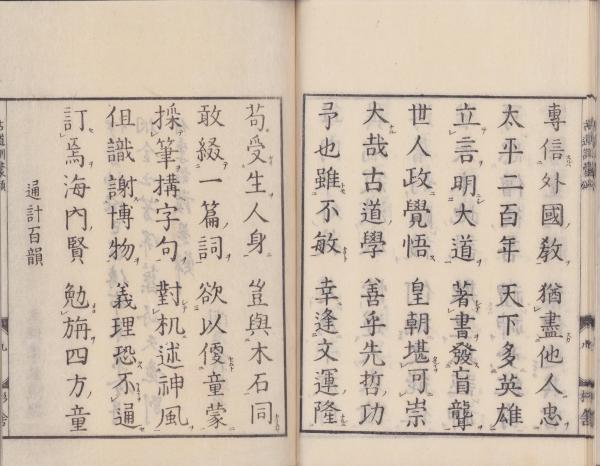 專信外國教 猶盡他人忠
太平二百年 天下多英雄
立言明大道 著書發盲聾
世人政覺悟 皇朝堪可崇
大哉古道學 善乎先哲功
予也雖不敏 幸逢文運隆
苟受生人身 豈與木石同
敢綴一篇詞 欲以優童蒙
操筆搆字句 對机述神風
但識謝博物 義理恐不通
訂焉海内賢 勉旃四方童
通計百韻